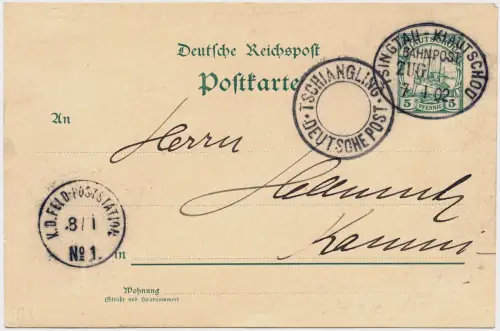 Deutsche Reichspost
Postkarte
TSINGTAU - KIAUTSCHOU
BAHNPOST
ZUG 1
7 1 02
5 PFENNIG 5
TSCHIANGLING
* DEUTSCHE POST *
An
Herrn
K.D. FELD-POSTSTATION
8/1
No 1.
in
Wohnung
(Straße und Hausnummer)